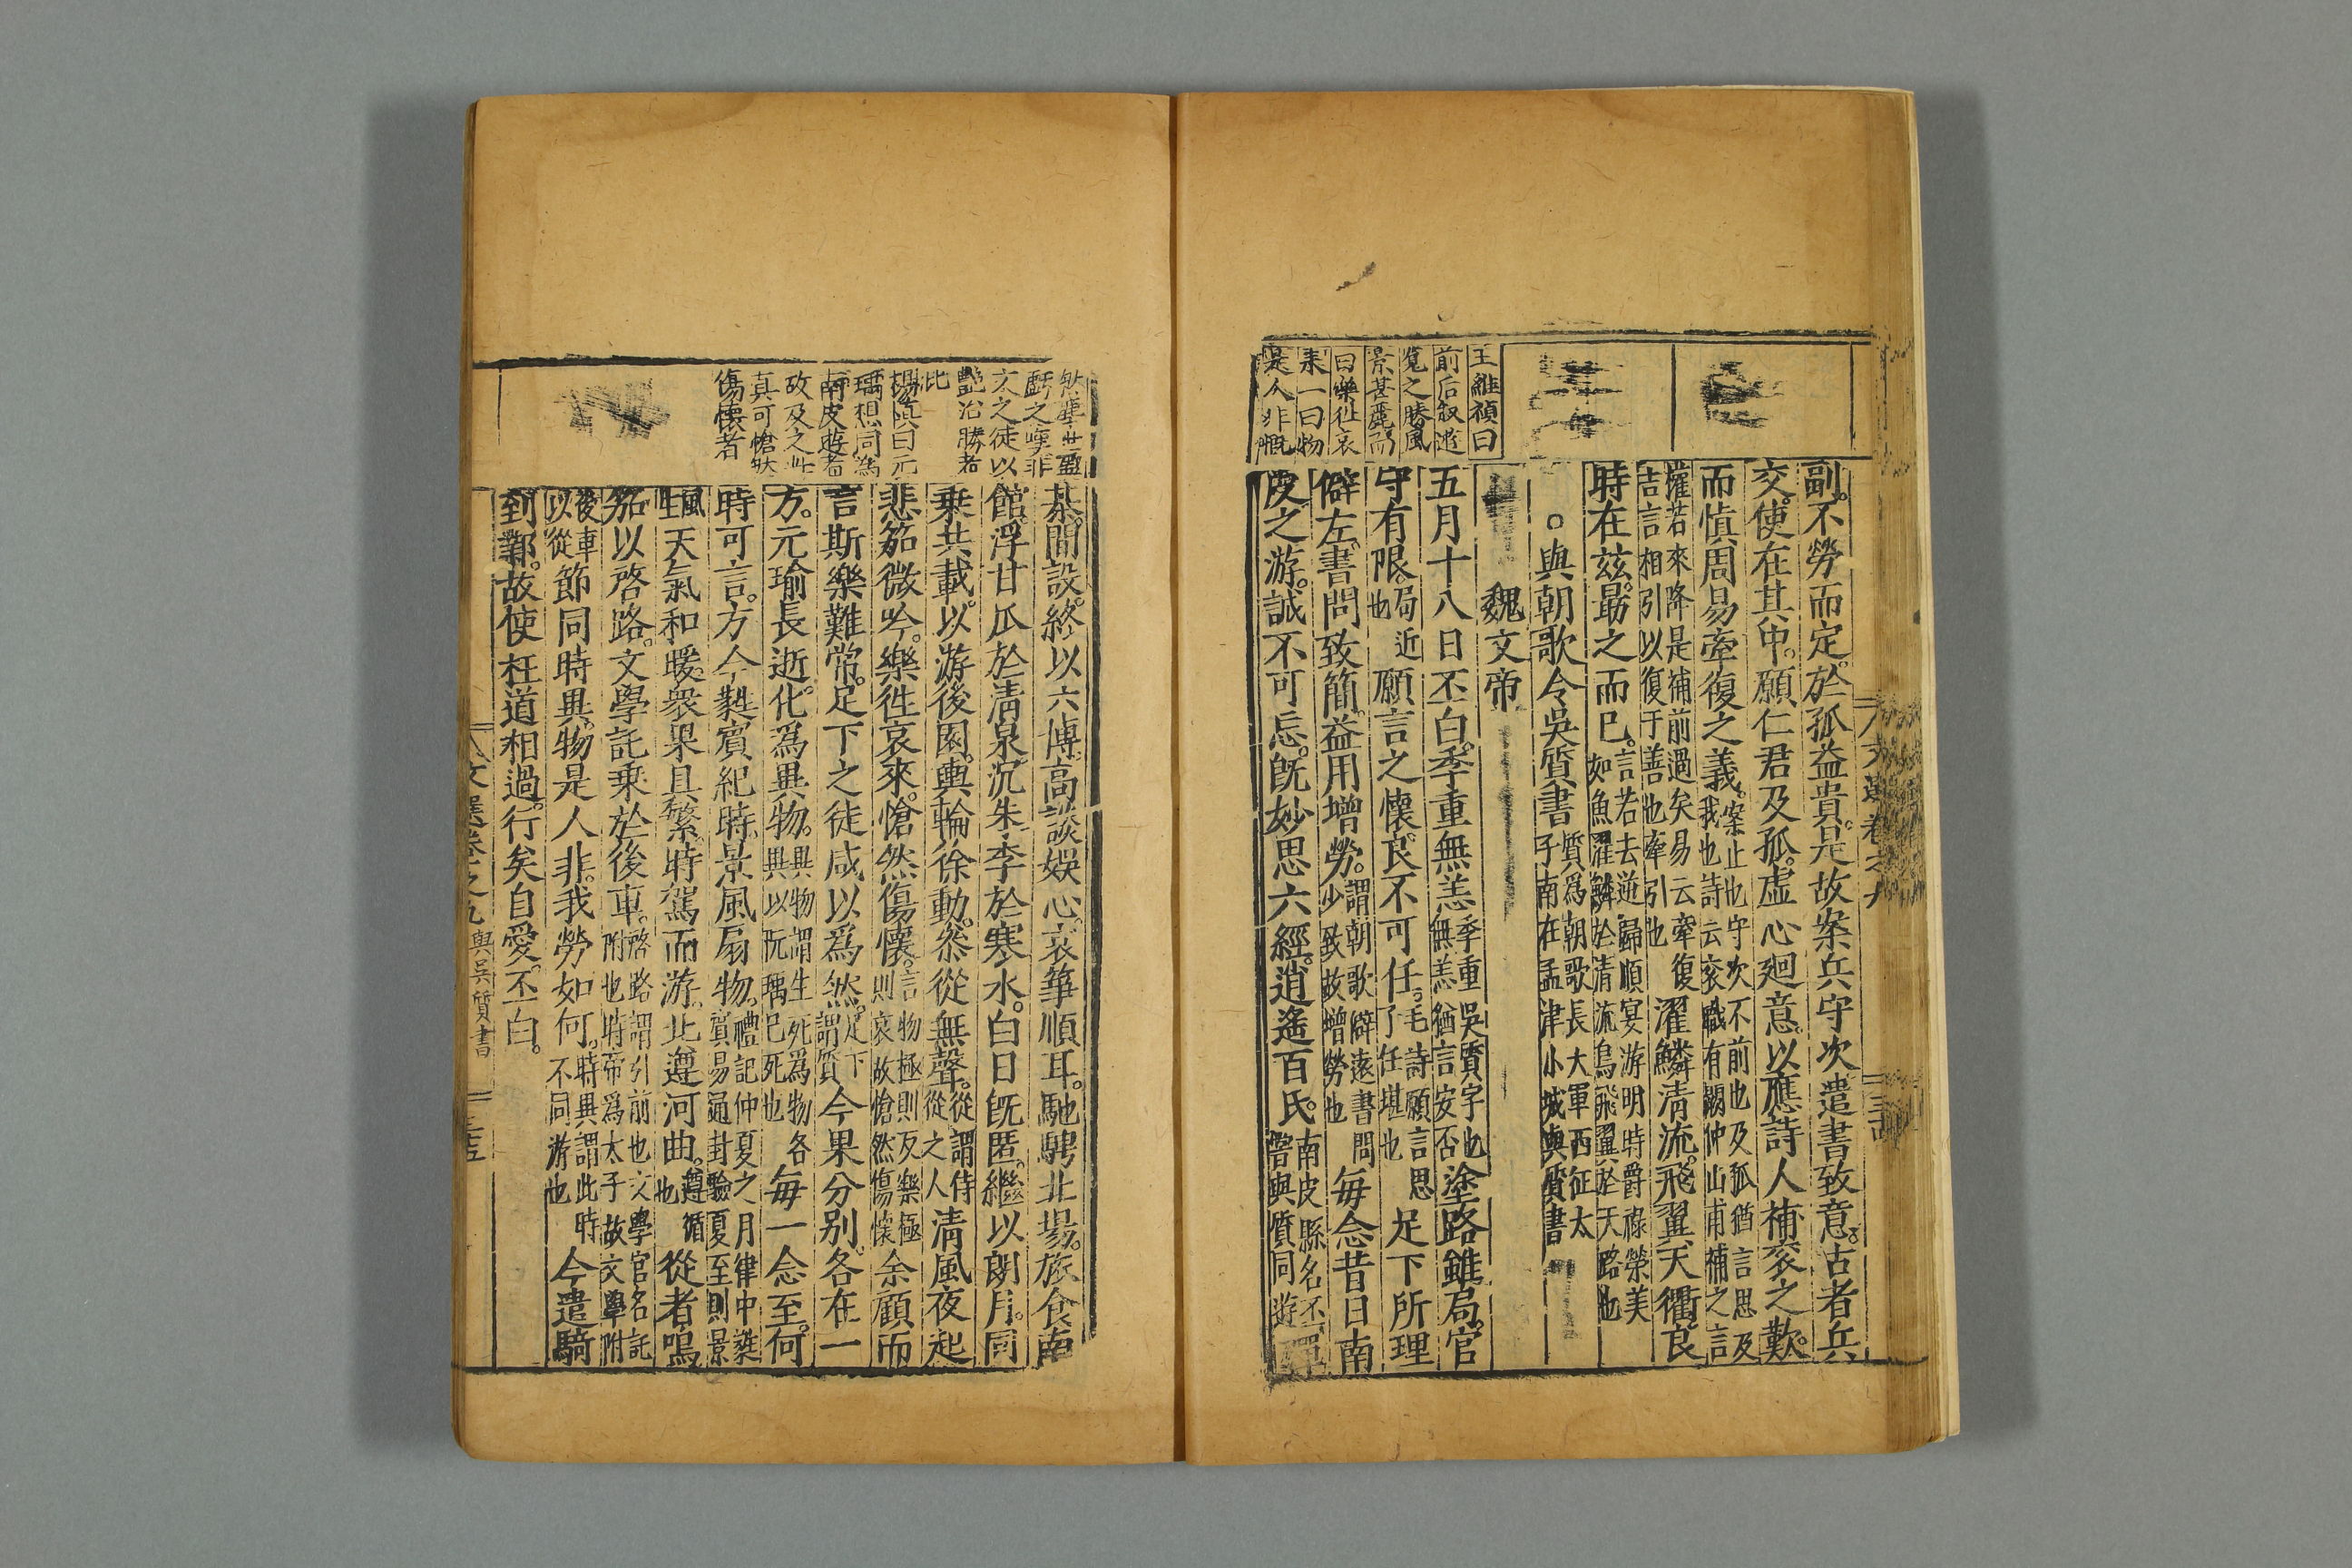 王維禎曰
前后叙遊
覧之勝風
景甚麗而
曰樂徃哀
来一曰物
是人非慨
副不勞而定於孤益貴是故案兵守次遣書致意古者兵
交使在其中願仁君及孤虚心廻意以應詩人補衮之歎
而慎周易牽復之義案止也守次不前也及孤猶言思及
我也詩云衮職有闕仲山甫補之言
攉若來降是補前過矣易云牽復
吉言相引以復于善也牽引也
濯鱗清流飛翼天衢良
時在兹朂之而巳言若去逆歸順宴游明時爵禄榮美
如魚濯鱗於清流鳥飛翼於天路也
○與朝歌令吳質書質爲朝歌長大軍西征太
子南在孟津小城與質書
魏文帝
五月十八日丕白季重無恙季重吳質字也
無恙猶言安否
塗路雖局官
守有限局近
也
願言之懐良不可任毛詩願言思
子任堪也
足下所理
僻左書問致簡益用増勞謂朝歌僻遠書問
少致故増勞也
毎念昔日南
皮之游誠不可忘旣妙思六經逍遙百氏南皮縣名丕
甞與質同遊
彈
文選卷之九
三十四
然華世盈
虧之嘆非
太之徒以
艶冶勝者
比
楊慎曰元
瑀想同爲
南皮遊者
故及之此
真可愴然
傷懐者
棊間設終以六博高談娯心哀箏順耳馳騁北場旅食南
館浮甘瓜於清泉沉朱李於寒水白日旣匿繼以朗月同
乗共載以游後園輿輪徐動叅從無聲從謂侍
從之人
清風夜起
悲笳微吟樂徃哀來愴然傷懐言物極則反樂極
則哀故愴然傷懐
余顧而
言斯樂難常足下之徒咸以爲然足下
謂質
今果分别各在一
方元瑜長逝化爲異物異物謂生死爲物各
異以阮瑀巳死也
毎一念至何
時可言方今㽔賓紀時景風扇物禮記仲夏之月律中㽔
賓易通封驗夏至則景
風
生
天氣和暖衆果具繁時駕而游北遵河曲遵循
也
從者鳴
笳以啓路文學託乗於後車啓路謂引前也文學官名託
附也時帝爲太子故文學附
後車
以從
節同時異物是人非我勞如何時異謂此時
不同游也
今遣騎
到鄴故使枉道相過行矣自愛丕白
文選卷之九
與吳質書
三十五